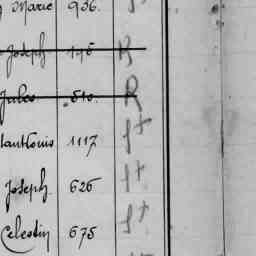 Marie 936. f+
Joseph 445 R
Jules 510. R
Louis 1117 f+
Joseph 626 f+
Celestin 675 f+